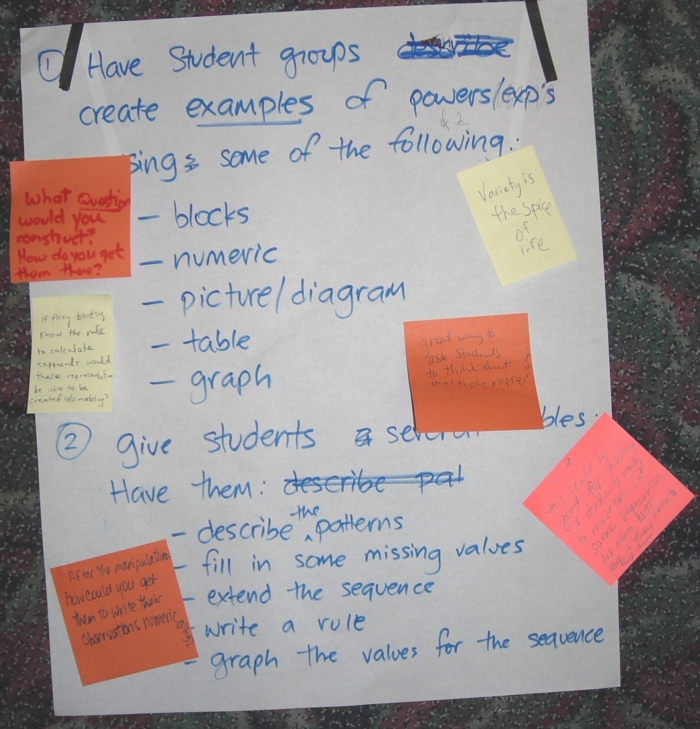 ① Have Student groups describe
create examples of powers/exp's
& 2
sing some of the following:
- blocks
- numeric
- picture/diagram
- table
- graph
② give students several bles.
Have them: describe pat
- describe the patterns
- fill in some missing values
- extend the sequence
- write a rule
- graph the values for the sequence
What Question
would you
construct?
How do you get
them there?
Variety is
the Spice
of
life
If they barely
know the rule
to calculate
exponents would
these representation
be able to be
created w/o modeling?
way to
ask students
to think about
multiple
After the manipulative
how could you get
them to write their
observations numeric